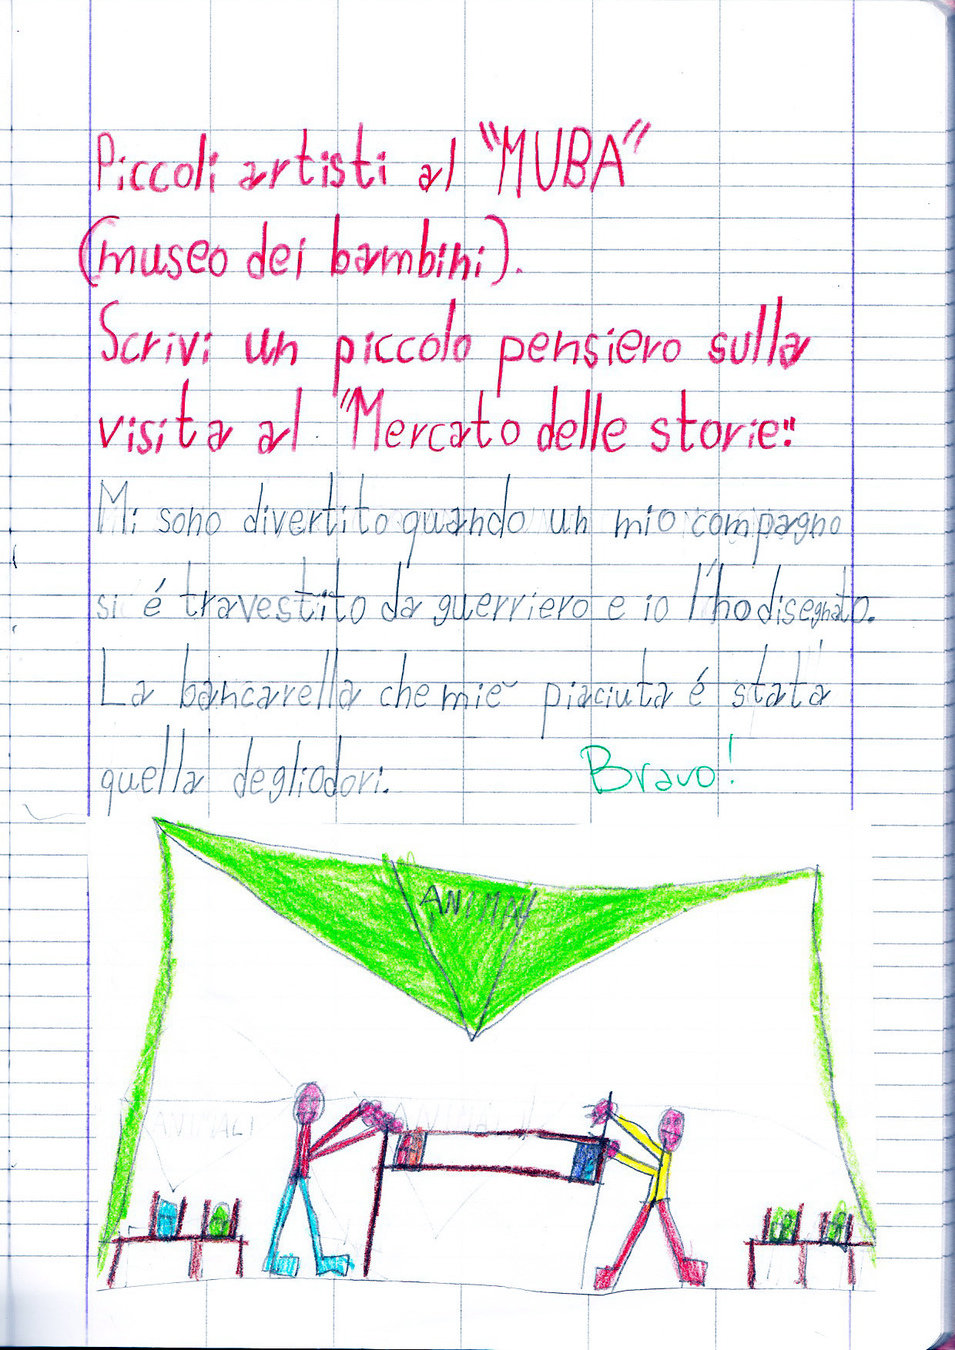 Piccoli artisti al "MUBA"
(museo dei bambini).
Scrivi un piccolo pensiero sulla
visita al "Mercato delle storie".
Mi sono divertito quando un mio compagno
si é travestito da guerriero e io l'ho disegnato.
La bancarella che mie piaciuta é stata
quella degliodori.
Bravo!
ANIMALI
ANIMALI
ANIMALI